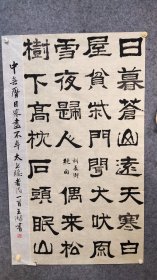 日暮蒼山遠天寒白
屋貧柴門聞犬吠風
雪夜歸人
劉長卿
偶來松
樹下高枕石頭眠山
中無曆日寒盡不年 太上隱者 書